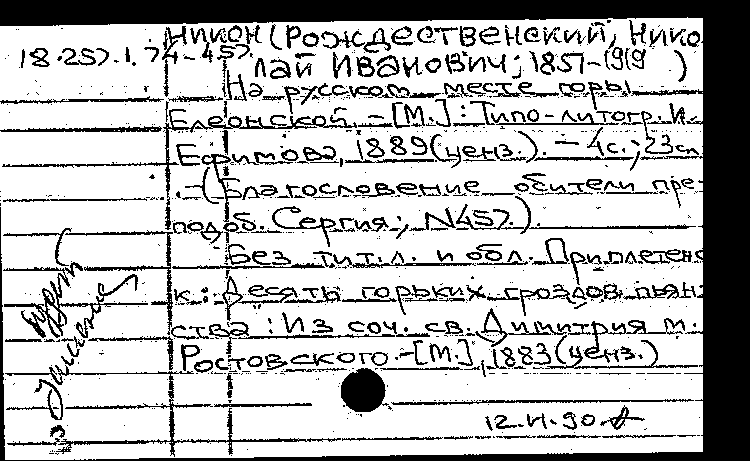 Никон (Рождественский, Нико
18.257.1.74-457.
лай Иванович; 1857-1919)
На русском месте горы
Елеонской. - [М.]: Типо-литогр. И.
Ефимова, 1889 (ценз.). - 4с.; 23см
.-(Благословение обители пре-
подоб. Сергия; N457.).
Без тит.л. и обл. Приплетено
к: Десять горьких гроздов пьян-
ства: Из соч. св. Димитрия м.
Ростовского.-[М.], 1883 (ценз.)
будет
12.VI.90.